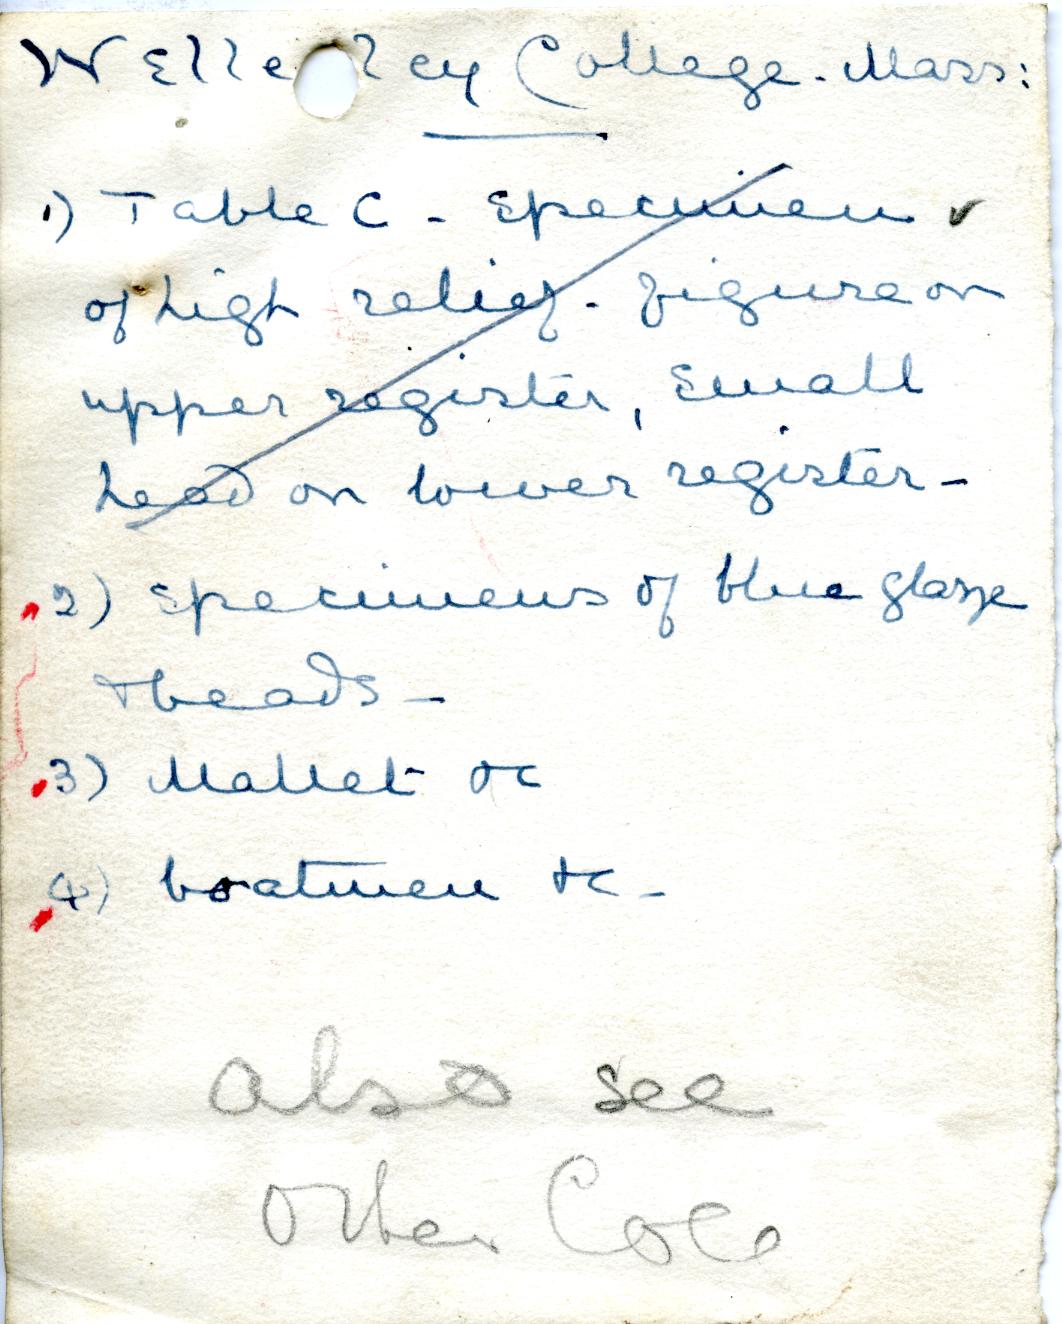 Welle ley College. Mass:
1) Table C - Specimen ✓
of high relief - figure on
upper register, Small
head on lower register -
2) Specimens of blue glaze
& beads -
3) Mallet &c
4) boatmen &c -
also see
Other Coll